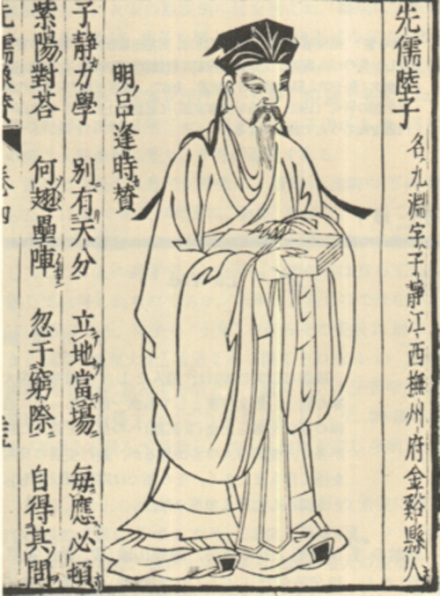 先儒陸子 名九淵字子靜江西撫州府金谿縣人
明呂逢時賛
子靜力學 别有天分 立地當場 每應必頓
紫陽對荅 何趐壘陣 忽于窮際 自得其問
先儒像賛 卷四